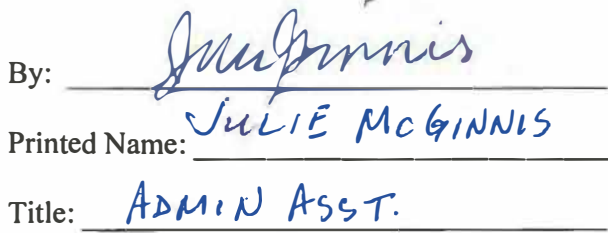 By:
Printed Name: JULIE MCGINNIS
Title: ADMIN ASST.